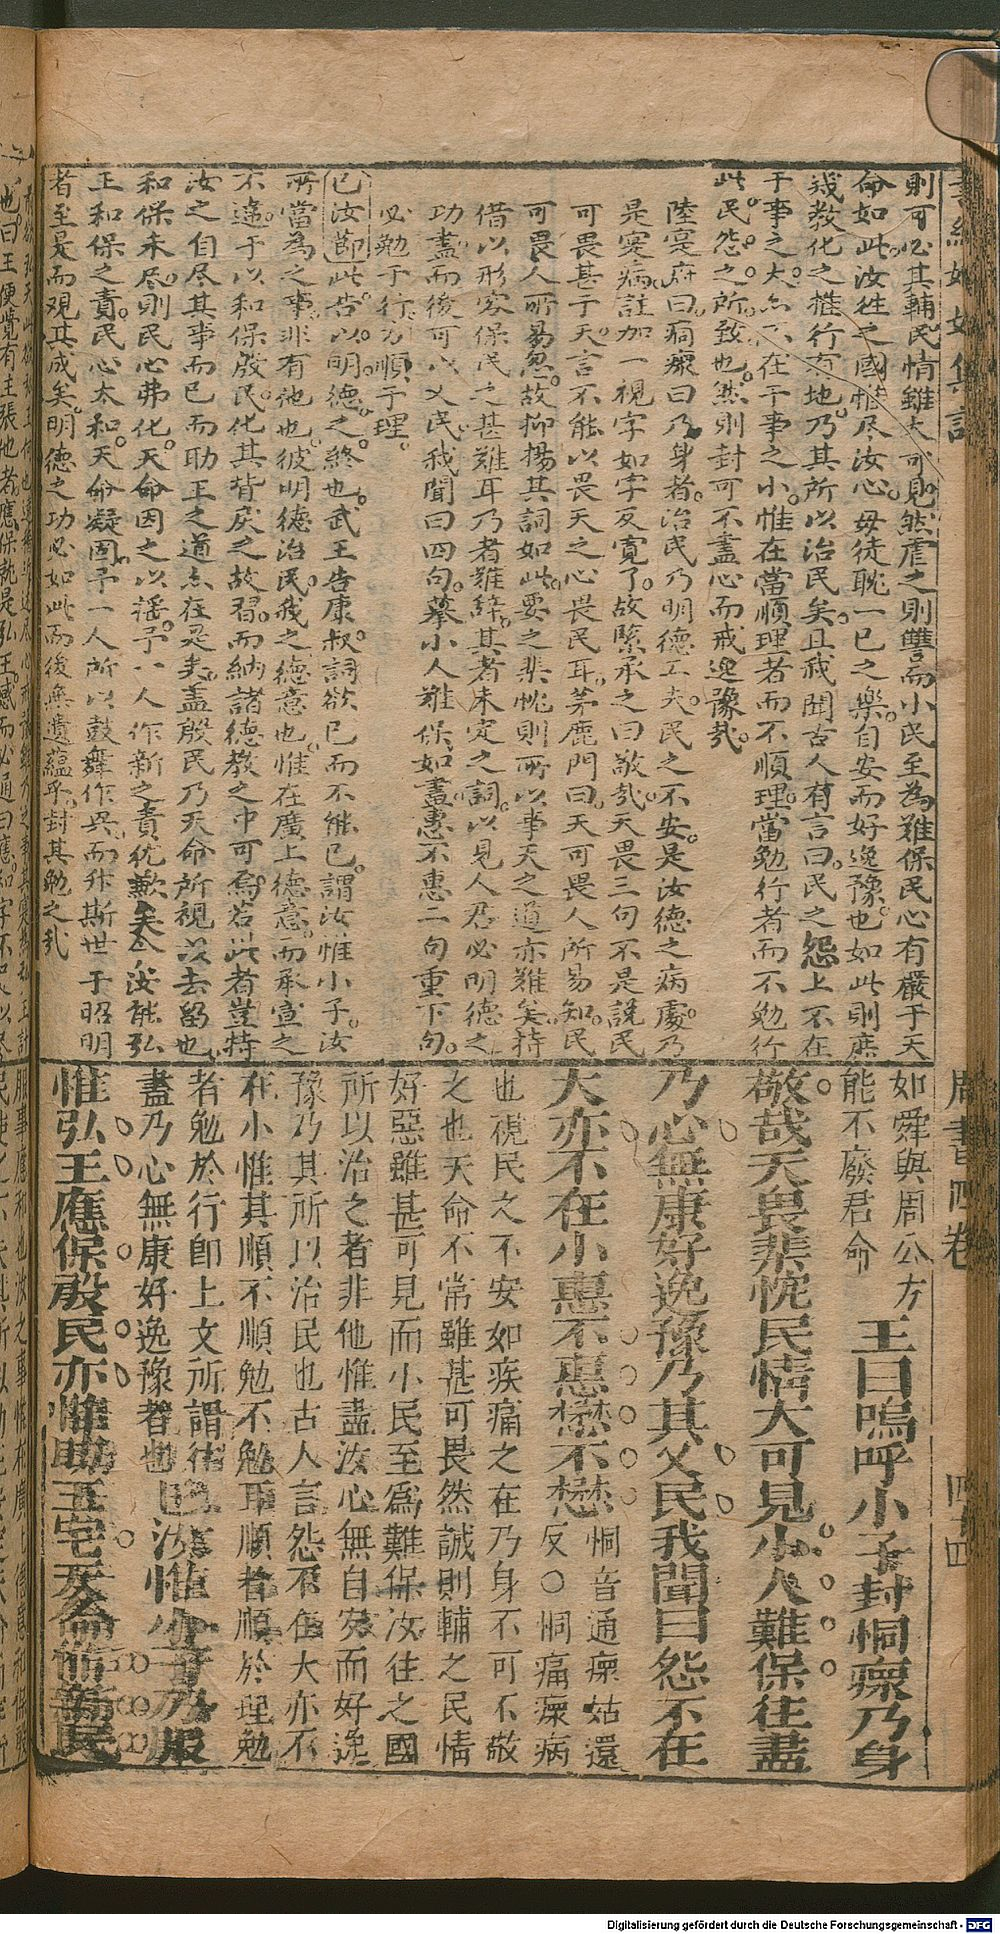 則可必其輔民情雖大可見然虐之則讐而小民至為難保民心有嚴于天
命如此汝往之國惟尽汝心毋徒耽一已之樂自安而好逸豫也如此則庶
幾教化之推行有地乃其所以治民矣且我聞古人有言曰民之怨上不在
于事之大亦不在于事之小惟在當順理者而不順理當勉行者而不勉行
此民怨之所致也然則封可不盡心而戒逸豫哉
陸宴府曰痌瘝曰乃身者治民乃明德工夫民之不安是汝德之病處乃
是寔病註加一視字如字反寛了故緊承之曰敬哉天畏三句不是説民
可畏甚于天言不能以畏天之心畏民耳茅鹿門曰天可畏人所易知民
可畏人所易忽故抑揚其詞如此要之棐忱則所以事天之道亦難矣特
借以形容保民之甚難耳乃者難辞其者未定之詞以見人君必明德之
功盡而後可以乂民我聞曰四句蒙小人難保如盡惠不惠二句重下句
必勉于行方順于理
已汝節此告以明德之終也武王告康叔詞欲已而不能已謂汝惟小子汝
所當為之事非有他也彼明德治民我之德意也惟在廣上德意而承宣之
不違于以和保殷民化其背戾之故習而納諸德教之中可焉若此者豈特
汝之自尽其事而已而助王之道亦在是矣盖殷民乃天命所視以去留也
和保未尽則民心弗化天命因之以搖予一人作新之責犹歉矣今汝能弘
王和保之責民心太和天命凝固予一人所以鼓舞作興而升斯世于昭明
者至是而观其成矣明德之功必如此而後無遺蘊乎封其勉之哉
如舜與周公方
能不廢君命
王曰嗚呼小子封恫瘝乃身
敬哉天畏棐忱民情大可見小人難保往盡
乃心無康好逸豫乃其乂民我聞曰怨不在
大亦不在小惠不惠懋不懋
恫音通瘝姑還
反○恫痛瘝病
也視民之不安如疾痛之在乃身不可不敬
之也天命不常雖甚可畏然誠則輔之民情
好惡雖甚可見而小民至爲難保汝往之國
所以治之者非他惟盡汝心無自安而好逸
豫乃其所以治民也古人言怨不在大亦不
在小惟其順不順勉不勉耳順者順於理勉
者勉於行即上文所謂往
盡乃心無康好逸豫者也
已汝惟小子乃服
惟弘王應保殷民亦惟助王宅天命作新民
周書四卷
四十四
Digitalisierung gefördert durch die Deutsche Forschungsgemeinschaft - DFG